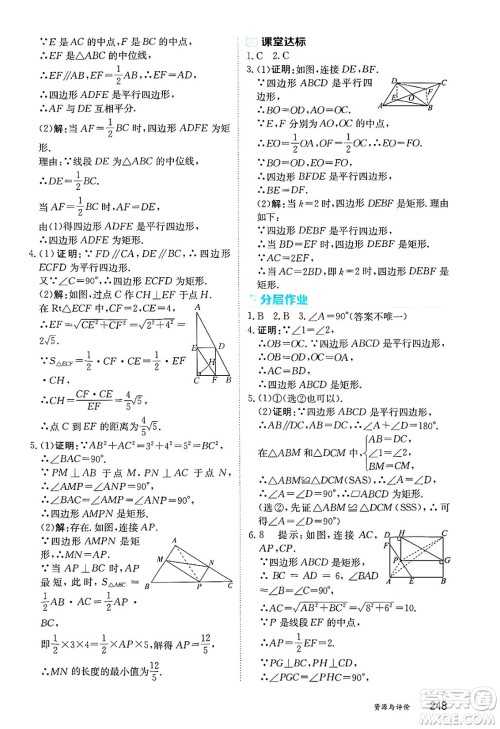 ∵E 是 AC 的中点，F 是 BC 的中点，
∴EF 是△ABC 的中位线，
∴EF∥AB，EF=1/2AB，∴EF=AD，
∴四边形 ADFE 是平行四边形，
∴AF 与 DE 互相平分.
(2)解：当 AF=1/2BC 时，四边形 ADFE 为矩形.
理由：∵线段 DE 为△ABC 的中位线，
∴DE=1/2BC.
当 AF=1/2BC 时，AF=DE，
由(1)得四边形 ADFE 是平行四边形，
∴四边形 ADFE 为矩形.
4.(1)证明：∵FD∥CA，DE∥BC，∴四边形
ECFD 为平行四边形，
∵∠C=90°，∴四边形 ECFD 为矩形.
(2)解：如图，过点 C 作 CH⊥EF 于点 H，
在 Rt△ECF 中，∵CF=2，CE=4，
∴EF=√(CE²+CF²)=√(2²+4²)=
2√5.
∵S△ECF=1/2·CF·CE=1/2·EF
·CH，
∴CH=CF·CE/EF=4/5√5，
∴点 C 到 EF 的距离为4/5√5.
5.(1)证明：∵AB²+AC²=3²+4²=25，BC²=25，
∴AB²+AC²=BC²，∴∠A=90°.
∵PM⊥AB 于点 M，PN⊥AC 于点 N，
∴∠AMP=∠ANP=90°，
∴∠A=∠AMP=∠ANP=90°，
∴四边形 AMPN 是矩形.
(2)解：存在.如图，连接 AP.
∵四边形 AMPN 是矩形，
∴MN=AP.
∵当 AP⊥BC 时，AP
最短，此时，S△ABC=1/2
AB·AC=1/2BC·AP，
∴1/2×3×4=1/2AP×5，解得 AP=12/5，
∴MN 的长度的最小值为12/5.
课堂达标
1.C 2.C
3.(1)证明：如图，连接 DE，BF.
∵四边形 ABCD 是平行四
边形，
∴BO=OD，AO=OC.
∵E，F 分别为 AO，OC 的中点，
∴EO=1/2OA，OF=1/2OC，
∴EO=FO.
∵BO=OD，EO=FO，
∴四边形 BFDE 是平行四边形，
∴BE=DF，BE∥DF.
(2)解：当 k=2 时，四边形 DEBF 是矩形.理由
如下：
当 BD=2AB 时，
∵四边形 ABCD 是平行四边形，
∴BD=2OD，AB=CD，∴CD=OD.
∵F 是 OC 的中点，∴DF⊥OC，
∴∠DFE=90°.
由(1)得四边形 DEBF 是平行四边形，
∴四边形 DEBF 是矩形，
∴当 k=2 时，四边形 DEBF 是矩形.
分层作业
1.B 2.B 3.∠A=90°(答案不唯一)
4.证明：∵∠1=∠2，
∴OB=OC.∵四边形 ABCD 是平行四边形，
∴OB=OD，OC=OA，
∴AC=BD，
∴四边形 ABCD 是矩形.
5.(1)①(选②也可以)
(2)证明：∵四边形 ABCD 是平行四边形，
∴AB∥DC，AB=DC，∴∠A+∠D=180°.
在△ABM 和△DCM 中，{AB=DC，∠1=∠2，BM=CM，
∴△ABM≌△DCM(SAS)，∴∠A=∠D，
∴∠A=∠D=90°，∴▱ABCD 为矩形.
(选②，同理可得△ABM≌△DCM(SSS)，
∴∠A=∠D=90°，
∴▱ABCD 为矩形)
6.8 提示：如图，连接 AC，CP.
∵四边形 ABCD 是矩形，
∴BC=AD=8，∠ABC
=90°，
∴AC=√(AB²+BC²)=√(6²+8²)=10.
∵P 是线段 EF 的中点，
∠ECF=90°，EF=4，
∴PC=1/2EF=2，
资源与评价 248